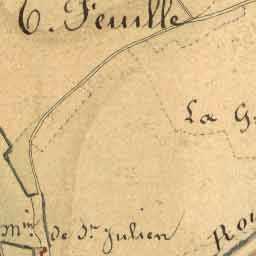 T. Feuille
La G
Mⁱⁿ de Sᵗ Julien
Rou